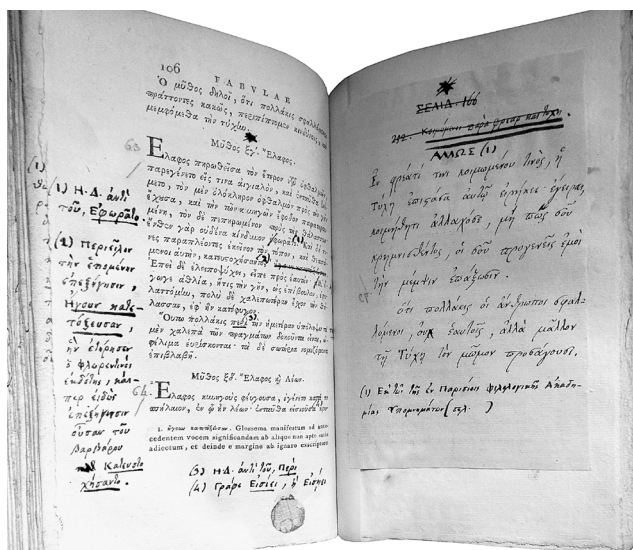 106
FABVLAE
Ὁ μῦθος δηλοῖ, ὅτι πολλάκις σφαλλόμενοι
πράττοντες κακῶς, περιπίπτομεν κινδύνοις, καὶ
μεμφόμεθα τὴν τύχην.
63
Μῦθος ξγ΄. Ἔλαφος.
Ἔλαφος πηρωθεῖσα τὸν ἕτερον τῶν ὀφθαλμῶν,
παρεγένετο εἴς τινα αἰγιαλὸν,
τοῦτο, τὸν μὲν ὁλόκληρον ὀφθαλμὸν πρὸς τὴν γῆν
ἔχουσα, καὶ τὴν τῶν κυνηγῶν ἔφοδον
μένη, τὸν δὲ πεπηρωμένον πρὸς τὴν θάλασσαν
ἔνθεν γὰρ οὐδένα κίνδυνον
νες παραπλέοντες ἐκεῖνον τὸν τόπον, καὶ
μενοι αὐτὴν, κατηυστόχησαν
Ἐπεὶ δὲ ἐλειποψύχει, εἶπε πρὸς ἑαυτήν·
γωγε ἀθλία, ἥτις τὴν γῆν, ὡς ἐπίβουλον,
λαττόμην, πολὺ δὲ χαλεπωτέραν ἔσχον τὴν θά-
λασσαν, ἐφ᾽ ἣν κατέφυγον.
Οὕτω πολλάκις παρὰ τὴν ἡμετέραν ὑπόληψιν τὰ
μὲν χαλεπὰ τῶν πραγμάτων δοκοῦντα εἶναι, ὠ-
φέλιμα εὑρίσκονται· τὰ δὲ σωτήρια νομιζόμενα,
ἐπιβλαβῆ.
64
Μῦθος ξδ΄. Ἔλαφος καὶ Λέων.
Ἔλαφος κυνηγοὺς φεύγουσα, ἐγένετο κατά τι
σπήλαιον, ἐν ᾧ ἦν λέων· ἐνταῦθα εἰσιοῦσα
Glossema manifestum ad ante-
cedentem vocem significandam ab aliquo non apte
adiectum, et deinde e margine ab ignaro exscriptore
(1) Η·Δ. ἀντὶ
τοῦ, Ἐφωρᾶτο.
(2) Περιεῖλον
τὴν ἑπομένην
ἐπεξήγησιν,
Ἤγουν κατε-
τόξευσαν,
ἣν εἰσήρησεν
ὁ φλωρεντινὸς
ἐκδότης, καί-
περ εἶδος
ἐπεξήγησιν
οὖσαν τοῦ
βαρβάρου
Κατευστο
χήσαντο.
(3) Η·Δ. ἀντὶ τοῦ, Περὶ
(4) Γράφε Εἰσίει, ἢ Εἰσῄει
ΣΕΛΙΔ. 166
ΑΛΛΩΣ (1)
Ἐν φρέατί του κοιμωμένου τινὸς, ἡ
Τύχη ἐπιστᾶσα αὐτῷ εἴρηκε· ἔγειραι,
κοιμήθητι ἀλλαχόσε, μή πως σοῦ
κρημνισθέντος, οἱ σοῦ προγενεῖς ἐμοὶ
τὴν μέμψιν ἐπάξωσιν.
ὅτι πολλάκις οἱ ἄνθρωποι σφαλ-
λόμενοι, οὐχ ἑαυτοῖς, ἀλλὰ μᾶλλον
τῇ Τύχῃ τὸν μῶμον προσάγουσι.
(1) Ἐκ τῶν τῆς ἐν Παρισίοις φιλολογικῆς Ἀκαδη-
μίας Ὑπομνημάτων (σελ. )